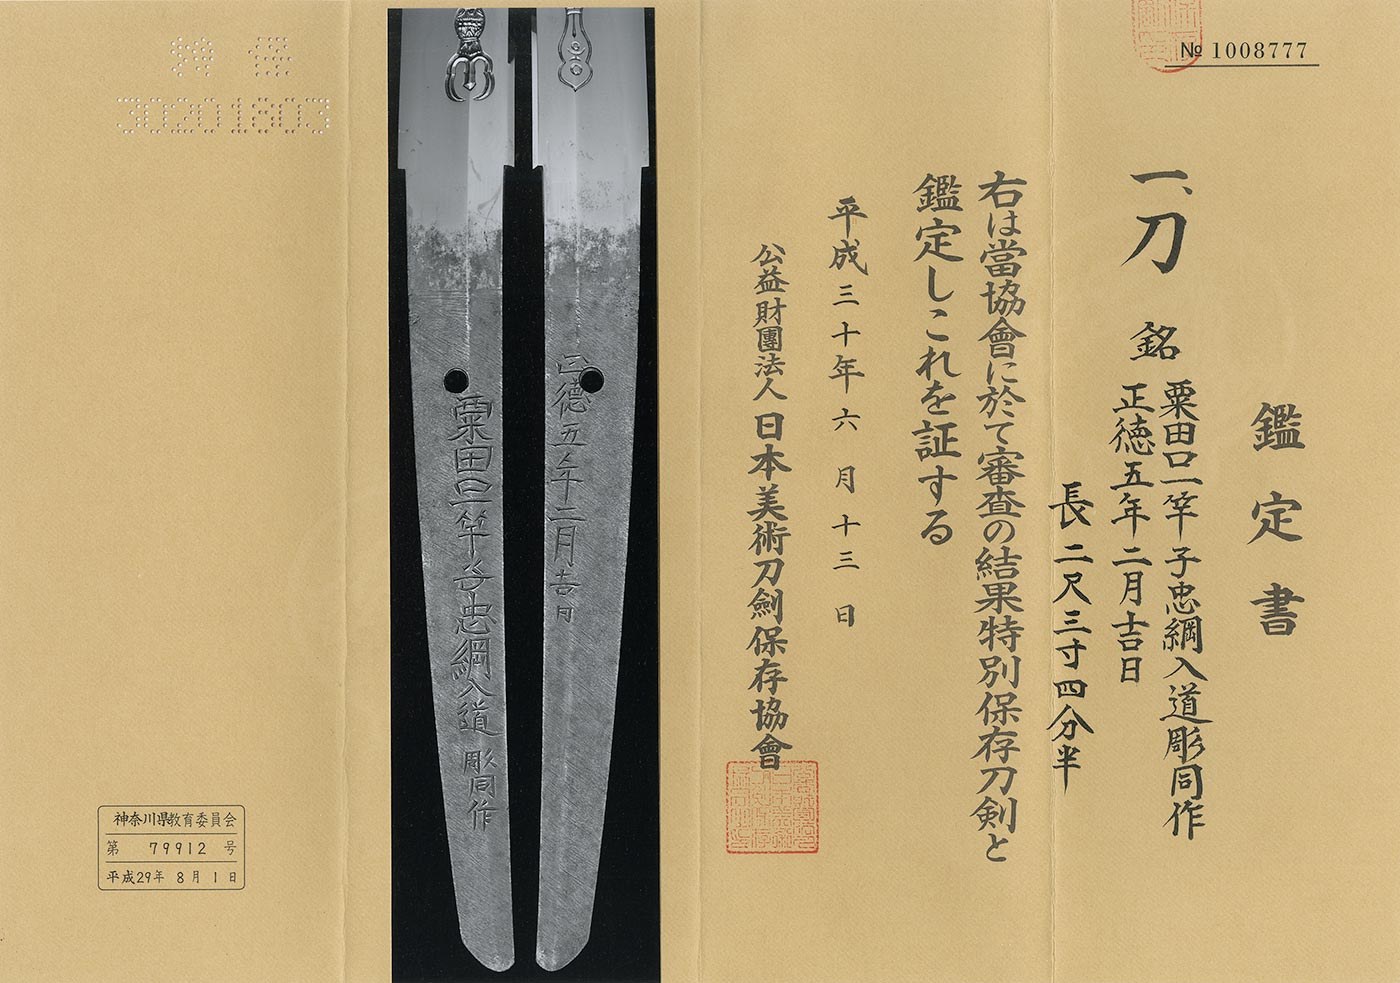 № 1008777
鑑定書
一、刀
銘
粟田口一竿子忠綱入道彫同作
正徳五年二月吉日
長二尺三寸四分半
右は當協會に於て審査の結果特別保存刀剣と
鑑定しこれを証する
平成三十年六月十三日
公益財團法人日本美術刀劍保存協會
正徳五年二月吉日
粟田口一竿子忠綱入道彫同作
30201803
神奈川県教育委員会
第 79912 号
平成29年 8月 1日